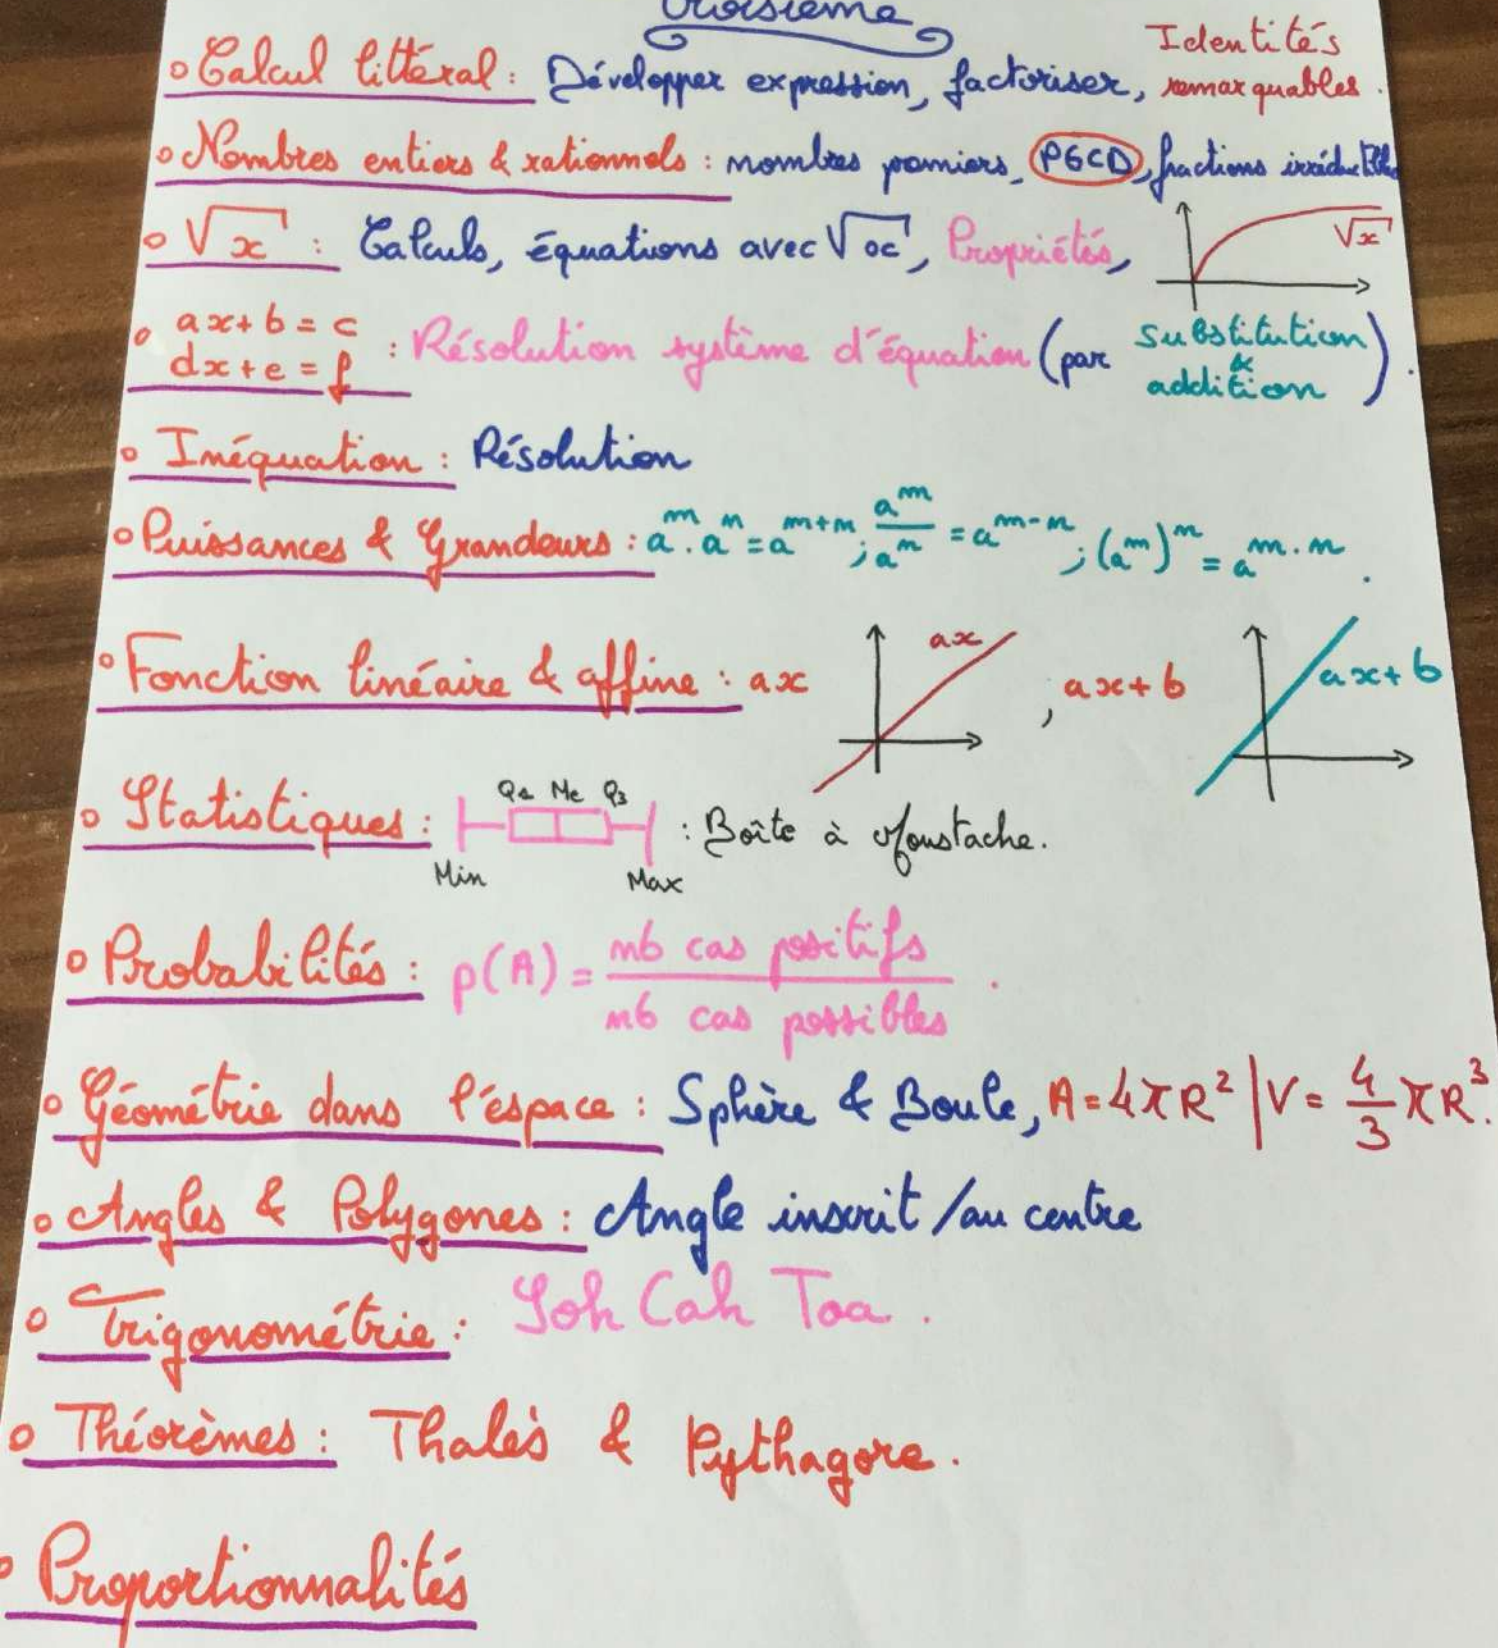 Troisième
◦ Calcul littéral : Développer expression, factoriser, Identités remarquables.
◦ Nombres entiers & rationnels : nombres premiers, PGCD, fractions irréductibles
◦ √x : Calculs, équations avec √x, Propriétés, √x
◦ ax+b = c
dx+e = f : Résolution système d'équation (par substitution & addition).
◦ Inéquation : Résolution
◦ Puissances & Grandeurs : a^m . a^n = a^(m+n) ; a^m / a^n = a^(m-n) ; (a^m)^n = a^(m.n) .
◦ Fonction linéaire & affine : ax ax , ax+b ax+b
◦ Statistiques : Min Q1 Me Q3 Max : Boîte à Moustache.
◦ Probabilités : p(A) = nb cas positifs / nb cas possibles .
◦ Géométrie dans l'espace : Sphère & Boule, A = 4πR² | V = 4/3 πR³.
◦ Angles & Polygones : Angle inscrit / au centre
◦ Trigonométrie : Soh Cah Toa .
◦ Théorèmes : Thalès & Pythagore .
◦ Proportionnalités